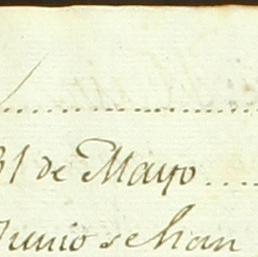 31 de Mayo ....
Junio se han